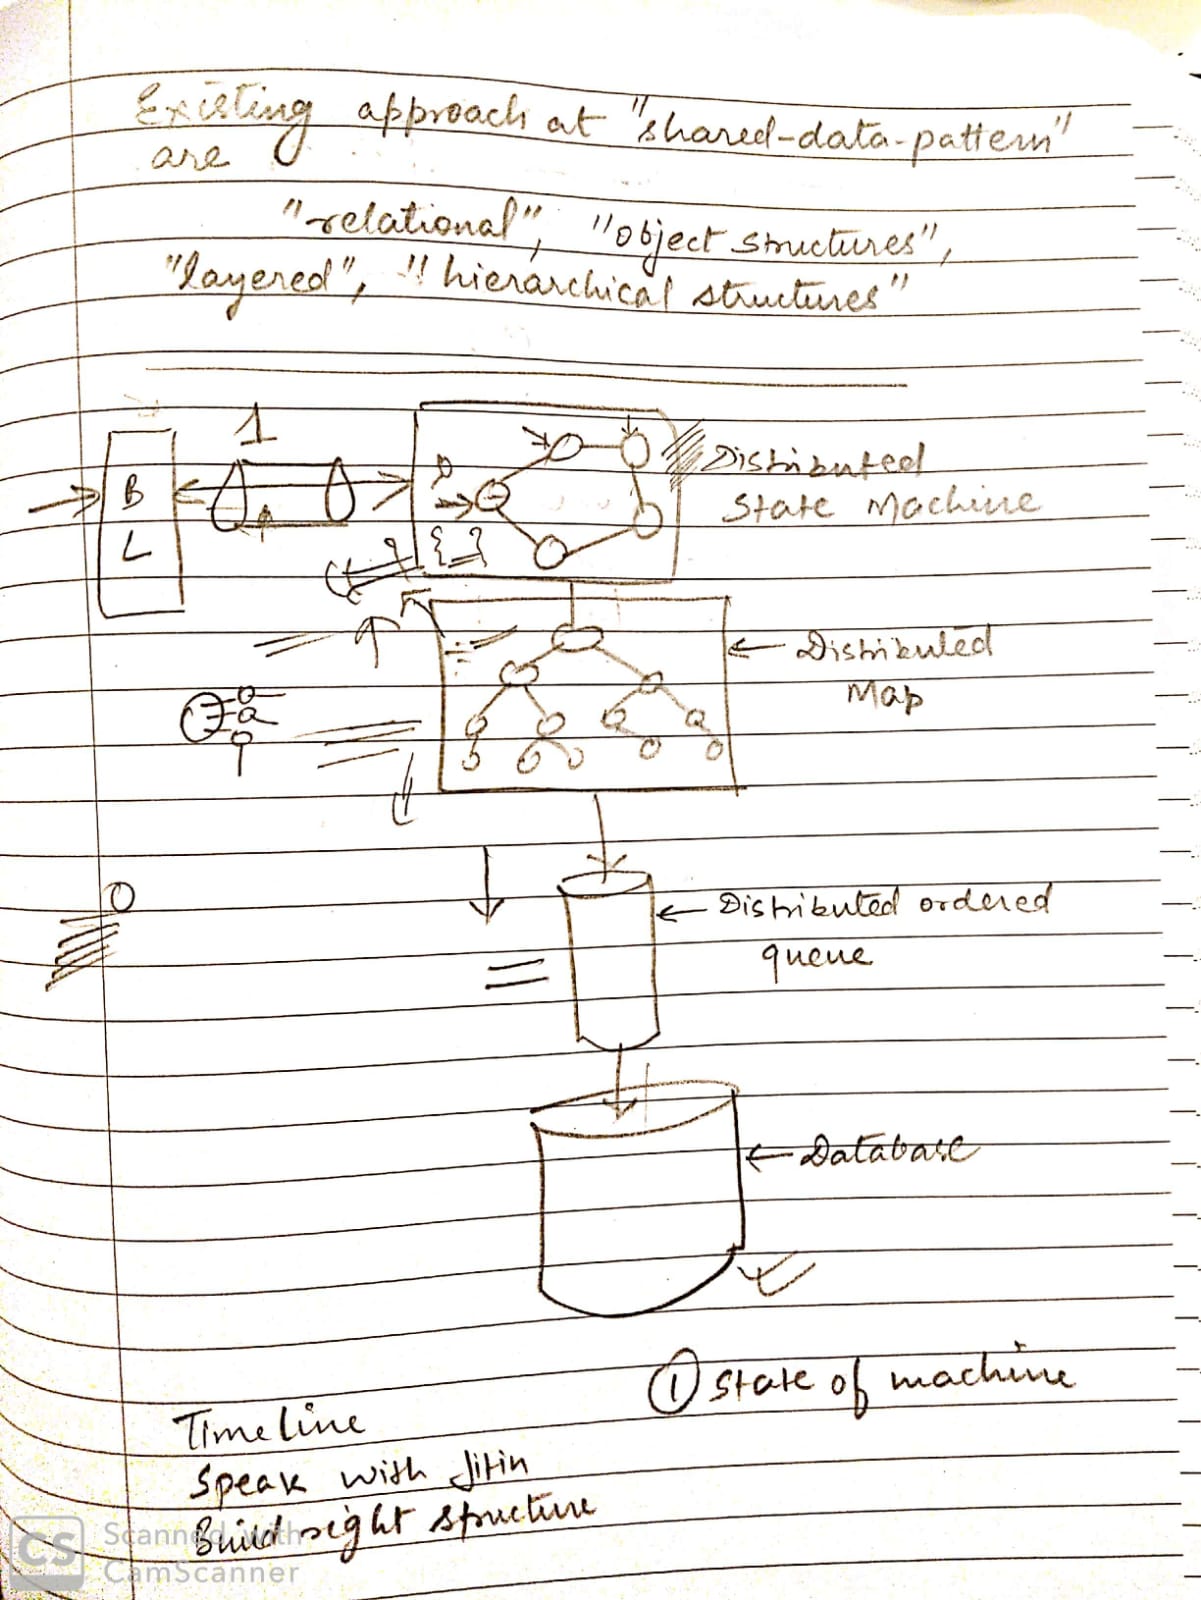 Existing approach at "shared-data-pattern"
are
"relational", "object structures",
"layered", "hierarchical structures"
1
B
L
D
{_}
Distributed
State Machine
Distributed
Map
Distributed ordered
queue
Database
① State of machine
Timeline
Speak with Jitin
Build right structure
CS Scanned with
CamScanner